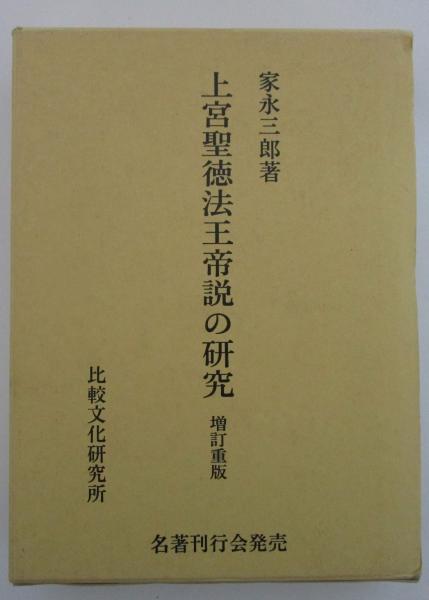 家永三郎著
上宮聖徳法王帝説の研究 増訂重版
比較文化研究所
名著刊行会発売